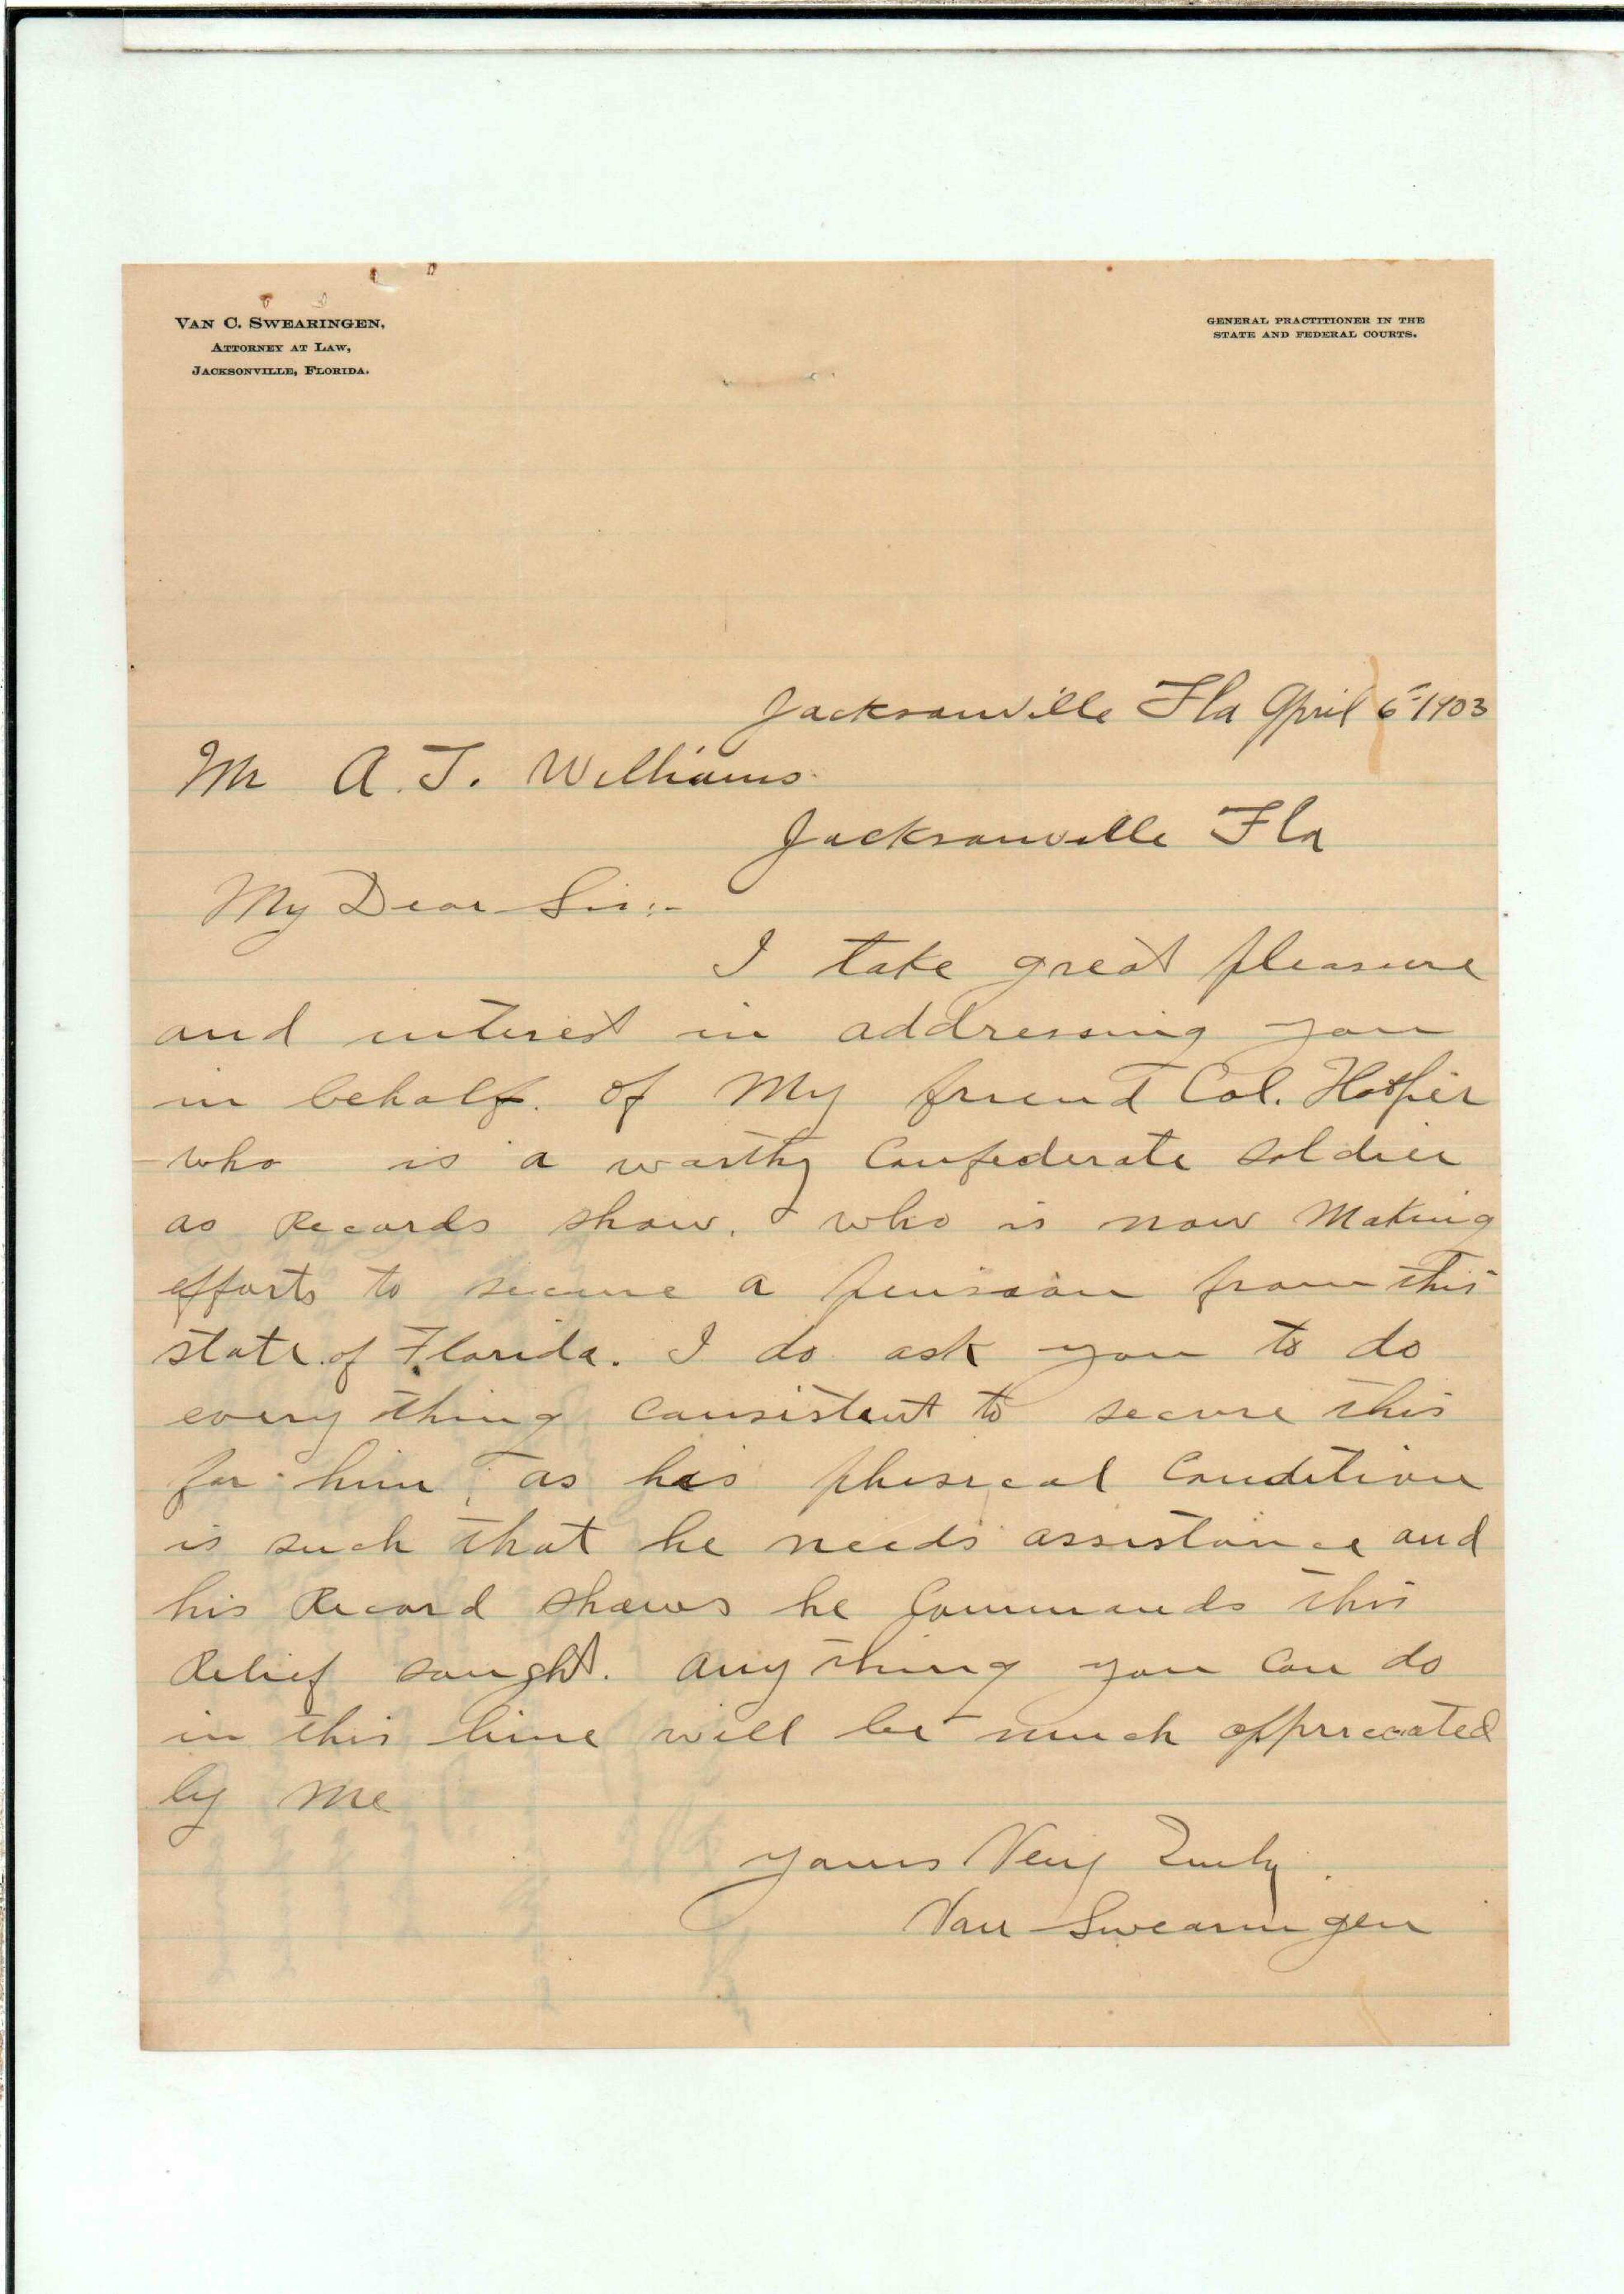 VAN C. SWEARINGEN,
ATTORNEY AT LAW,
JACKSONVILLE, FLORIDA.
GENERAL PRACTITIONER IN THE
STATE AND FEDERAL COURTS.
Jacksonville Fla April 6th 1903
Mr A. J. Williams.
Jacksonville Fla
My Dear Sir:-
I take great pleasure
and interest in addressing you
in behalf. of My friend Col. Hooper
who is a worthy Confederate soldier
as Records show. & who is now Making
efforts to secure a pension from this
state of Florida. I do ask you to do
every thing consistent to secure this
for him, as his phesical Condition
is such that he needs assistance and
his Record shows he Commands this
Relief sought. any thing you can do
in this line will be much appreciated
by Me
Yours Very Truly.
Van Swearingen